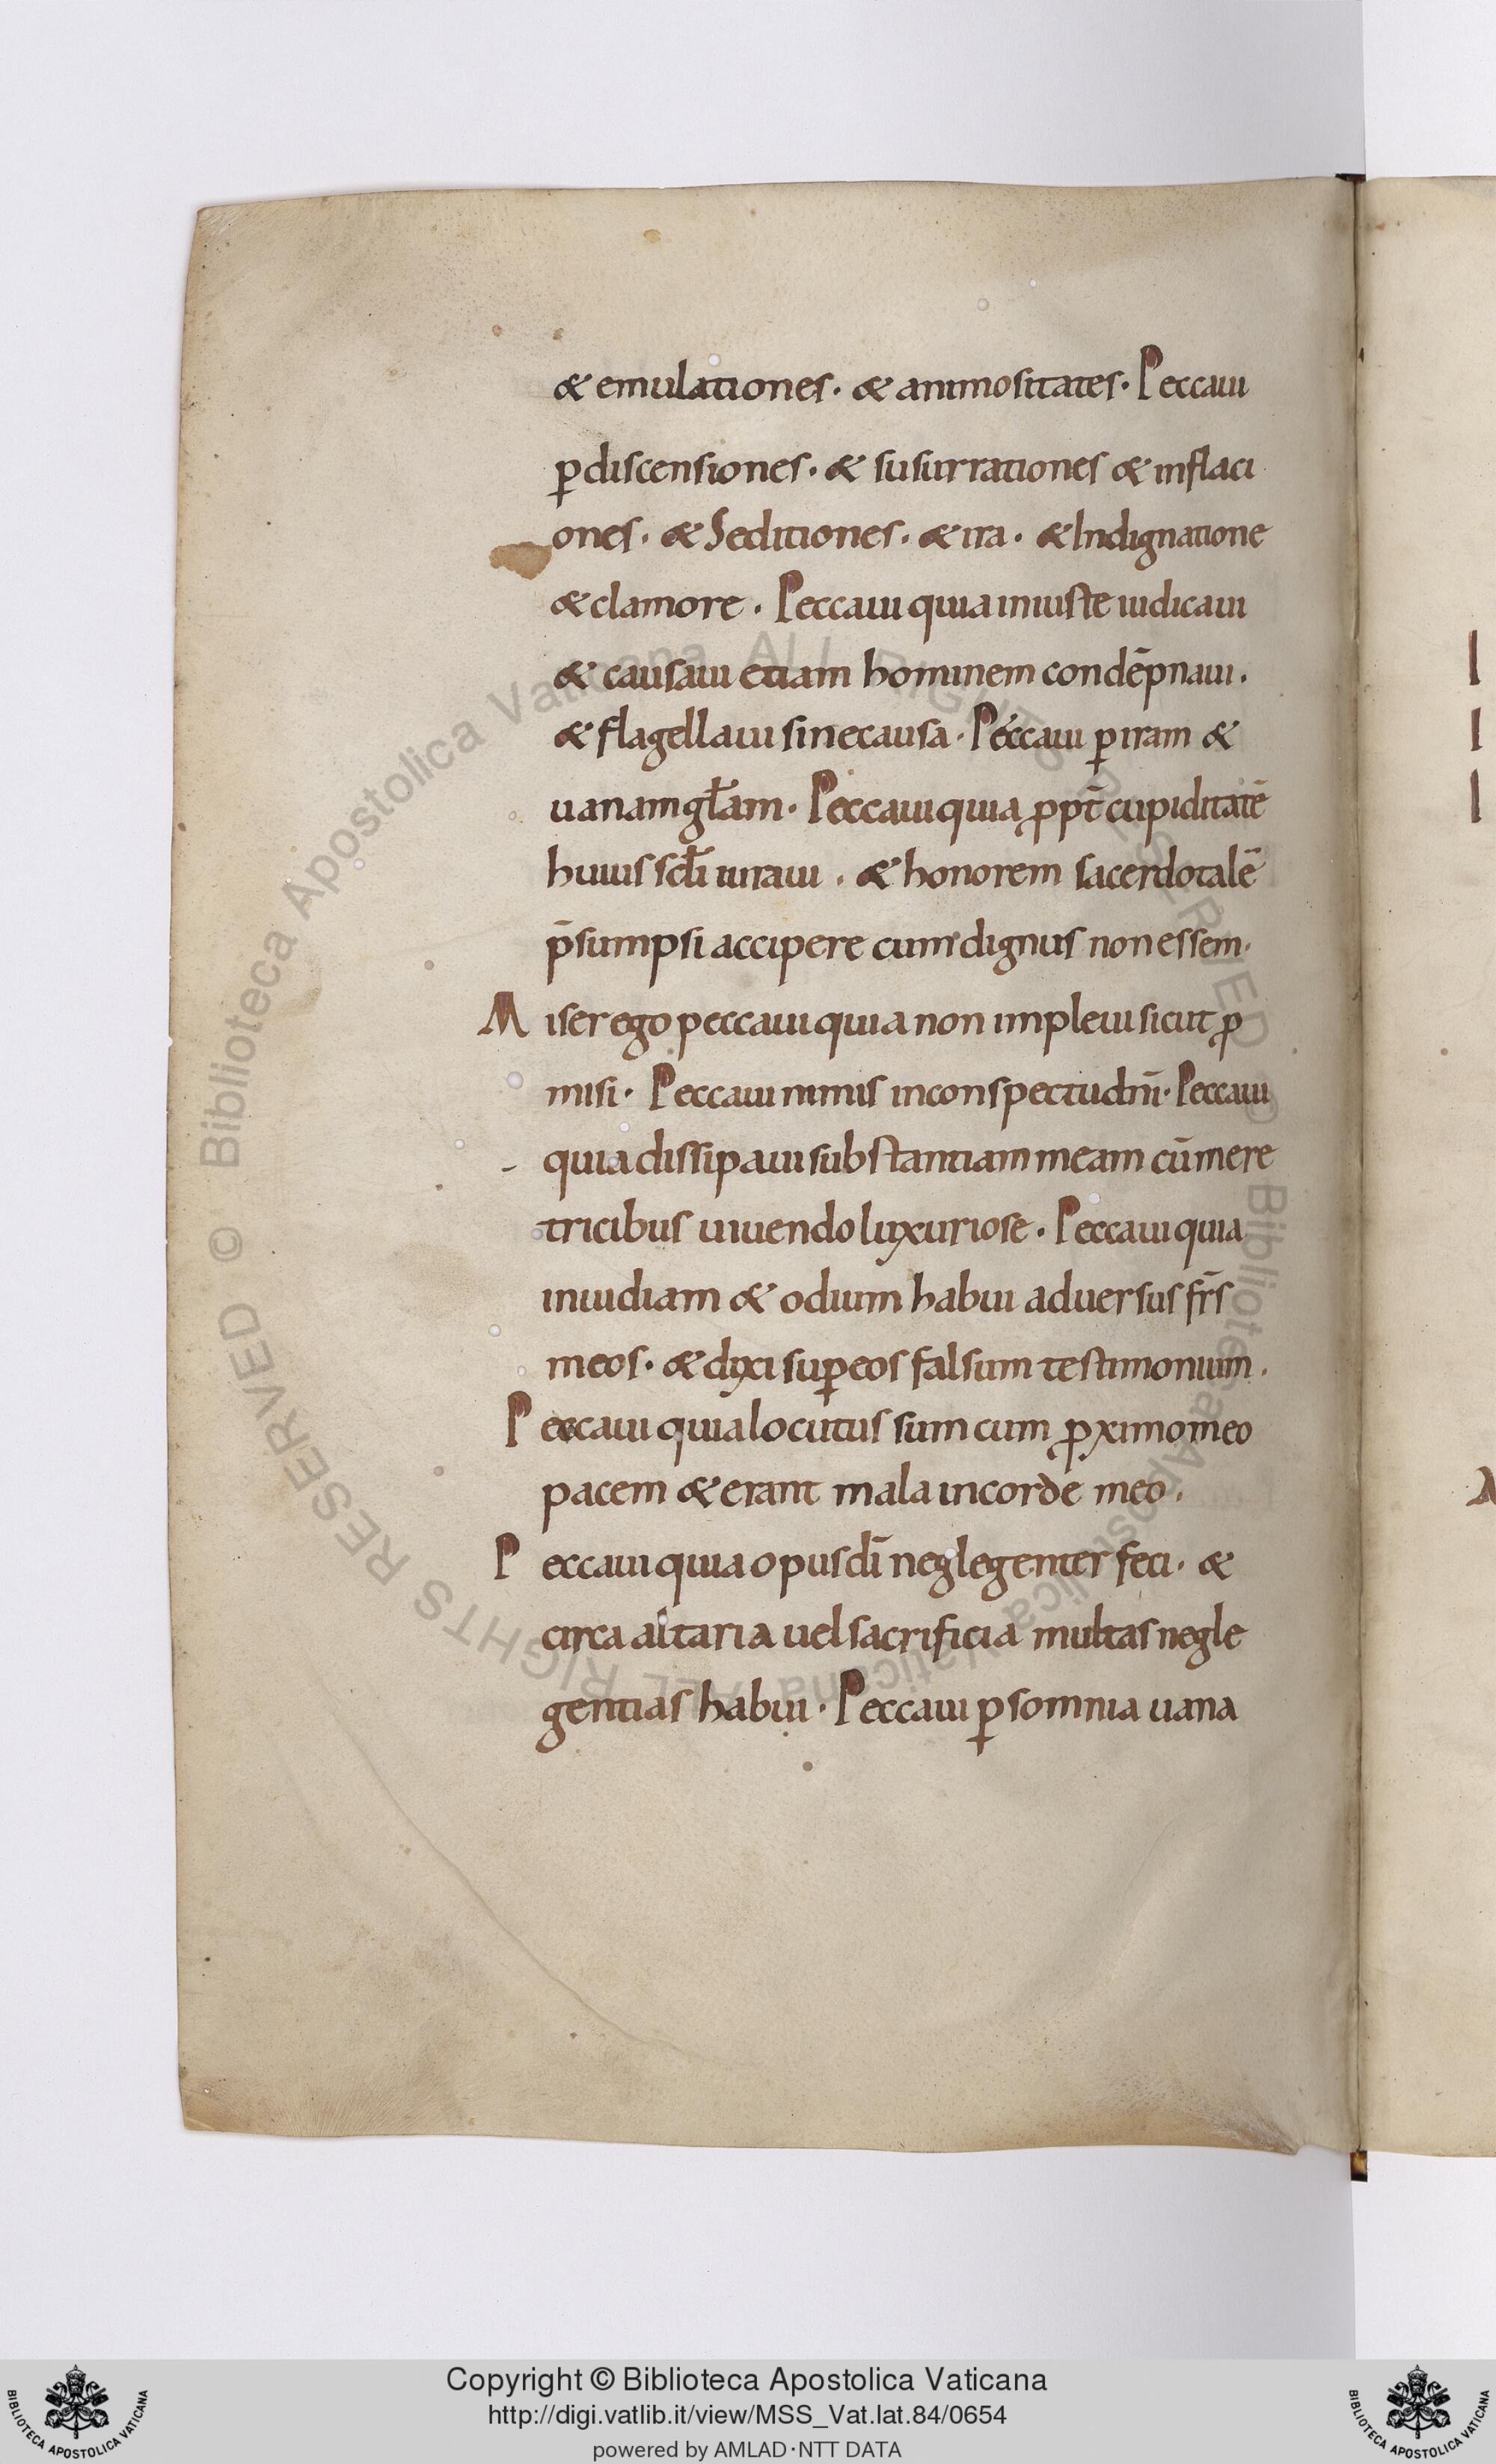 & emulationes· & animositates· Peccaui
ꝑ discensiones· & susurrationes & inflaci
ones· & Seditiones· & ira· & Indignatione
& clamore· Peccaui quia iniuste iudicaui
& causaui etiam hominem condēpnaui·
& flagellaui sine causa· Peccaui ꝑ iram &
uanam gl̄am· Peccaui quia ꝓpt̄ cupiditatē
huius sc̄li iuraui· & honorem sacerdotalē
p̄sumpsi accipere cum dignus non essem·
Miser ego peccaui quia non impleui sicut ꝓ
misi· Peccaui nimis in conspectu dn̄i· Peccaui
quia dissipaui substantiam meam cū mere
tricibus uiuendo luxuriose· Peccaui quia
inuidiam & odium habui aduersus fr̄s
meos· & dixi suꝑ eos falsum testimonium·
Peccaui quia locutus sum cum ꝓximo meo
pacem & erant mala in corde meo·
Peccaui quia opus dī neglegenter feci· &
circa altaria uel sacrificia multas negle
gentias habui· Peccaui ꝑ somnia uana
© Biblioteca Apostolica Vaticana ALL RIGHTS RESERVED
© Biblioteca Apostolica Vaticana ALL RIGHTS RESERVED
Copyright © Biblioteca Apostolica Vaticana
http://digi.vatlib.it/view/MSS_Vat.lat.84/0654
powered by AMLAD·NTT DATA
BIBLIOTECA APOSTOLICA VATICANA
BIBLIOTECA APOSTOLICA VATICANA